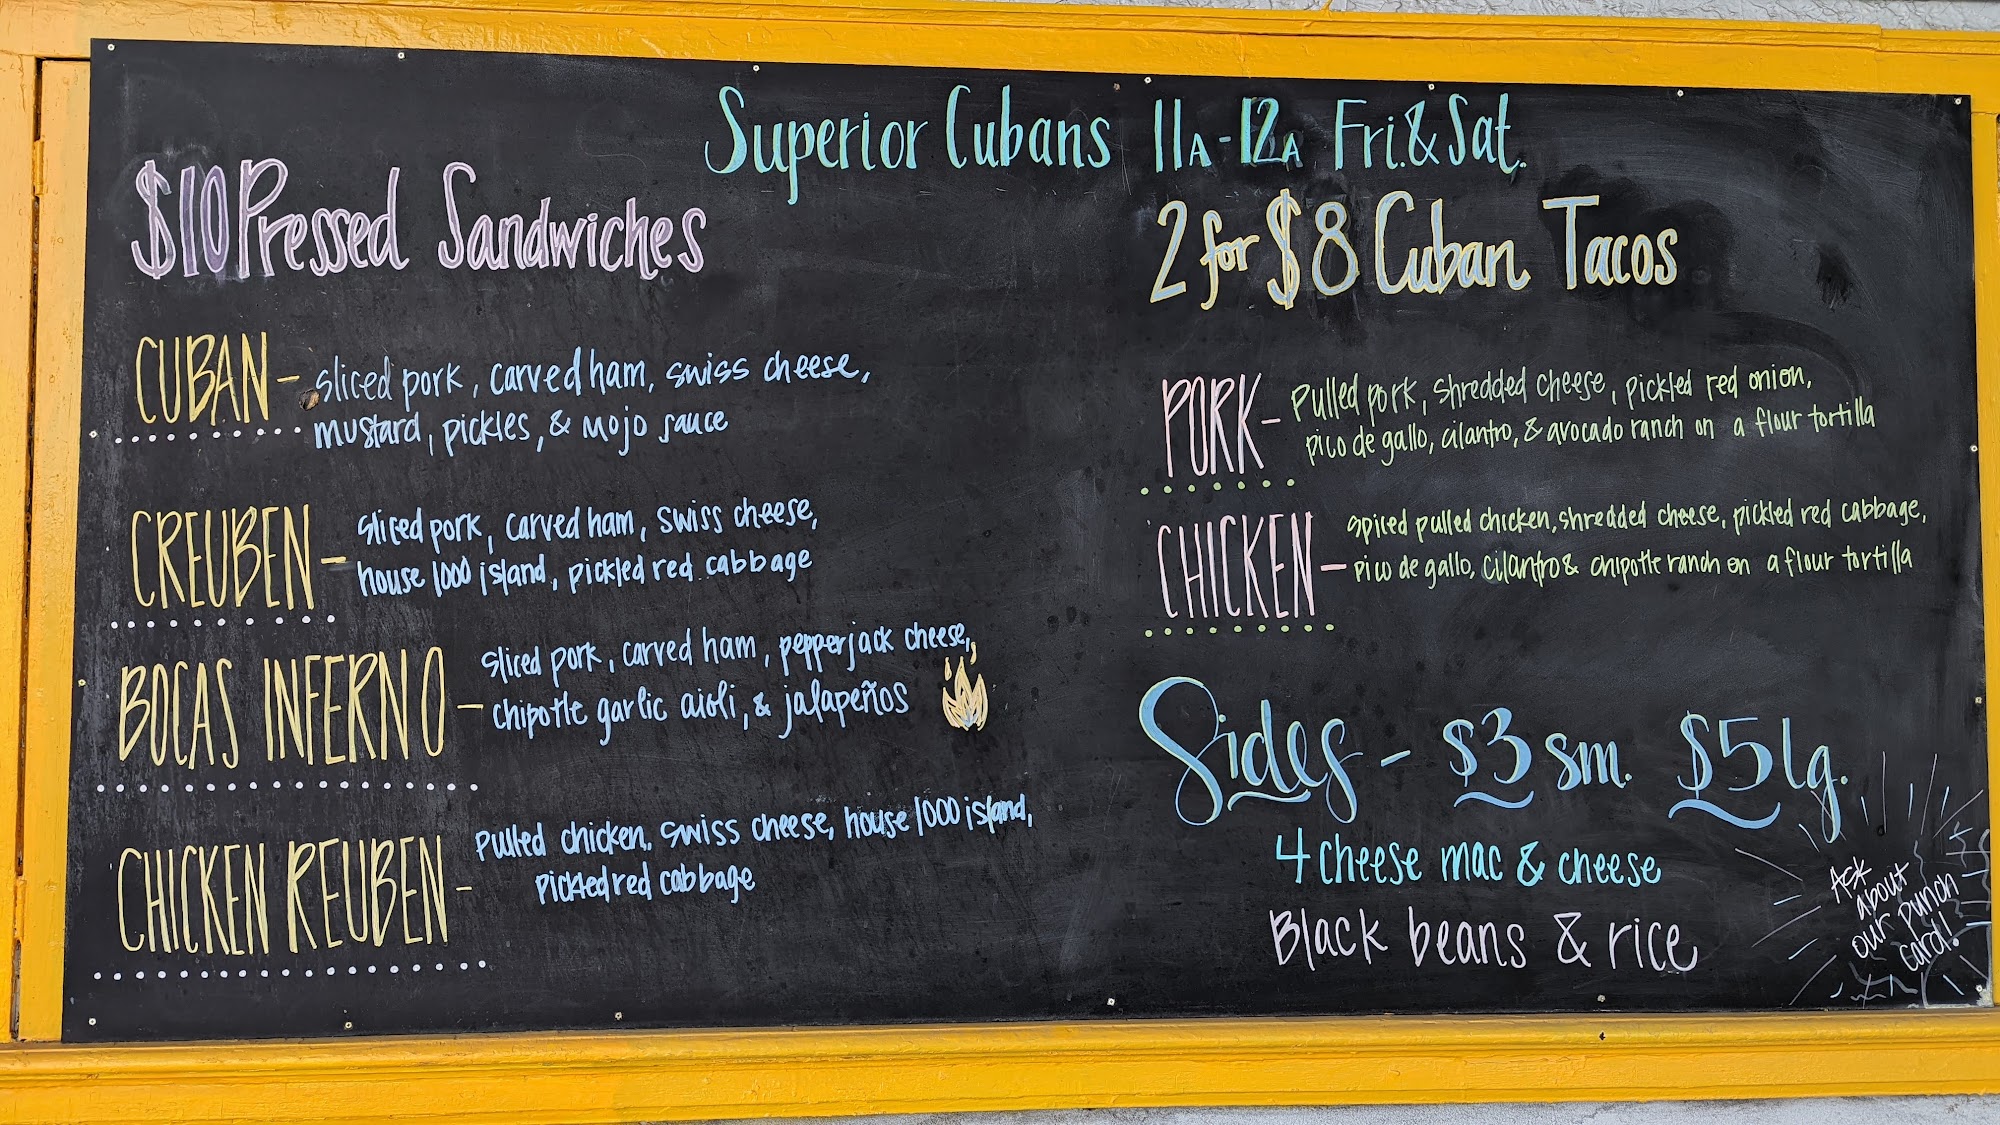 Superior Cubans 11A-12A Fri. & Sat.
$10 Pressed Sandwiches
CUBAN - sliced pork, carved ham, swiss cheese,
mustard, pickles, & mojo sauce
CREUBEN - sliced pork, carved ham, swiss cheese,
house 1000 island, pickled red cabbage
BOCAS INFERNO - sliced pork, carved ham, pepperjack cheese,
chipotle garlic aioli, & jalapeños
CHICKEN REUBEN - pulled chicken, swiss cheese, house 1000 island,
pickled red cabbage
2 for $8 Cuban Tacos
PORK - pulled pork, shredded cheese, pickled red onion,
pico de gallo, cilantro, & avocado ranch on a flour tortilla
CHICKEN - spiced pulled chicken, shredded cheese, pickled red cabbage,
pico de gallo, cilantro & chipotle ranch on a flour tortilla
Sides - $3 sm. $5 lg.
4 cheese mac & cheese
Black beans & rice
Ask
about
our punch
card!